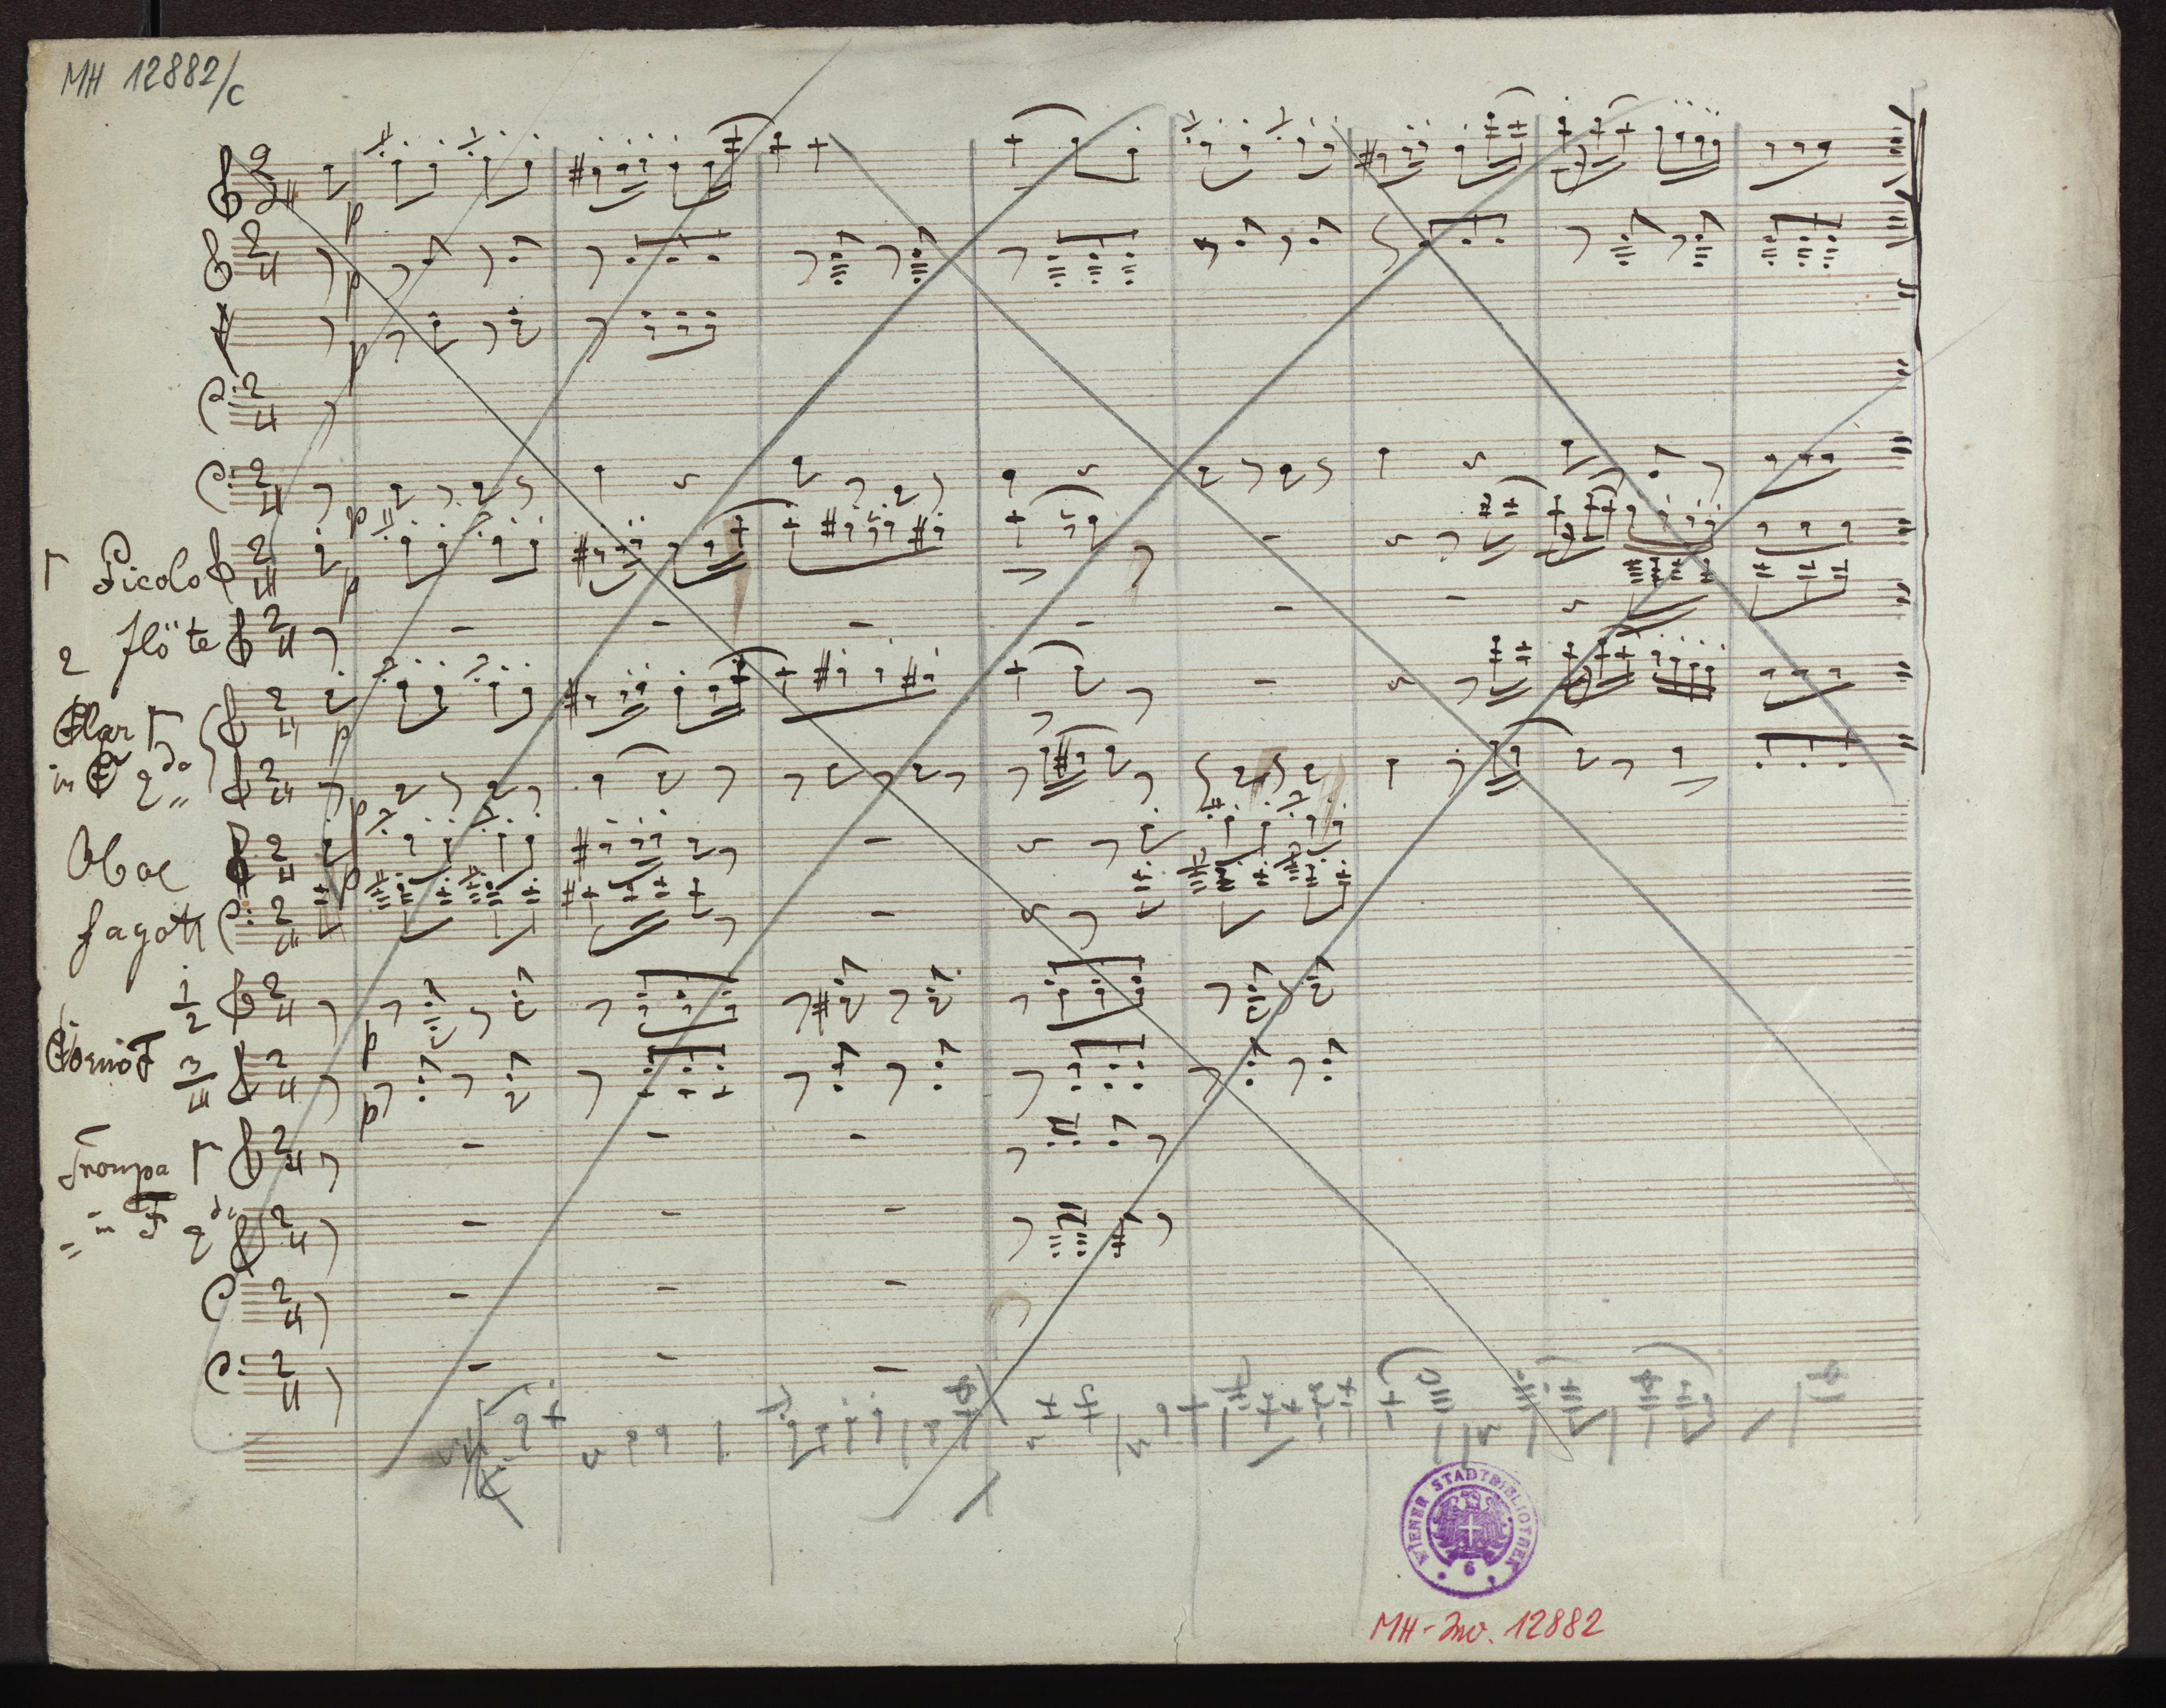 MH 12882/c
1 Picolo
2 Flöte
Clar 1
in C 2do
Oboe
Fagott
1/2
Corni F 3/4
Trompa 1
in F 2do
WIENER STADTBIBLIOTHEK
6
MH-Inv. 12882